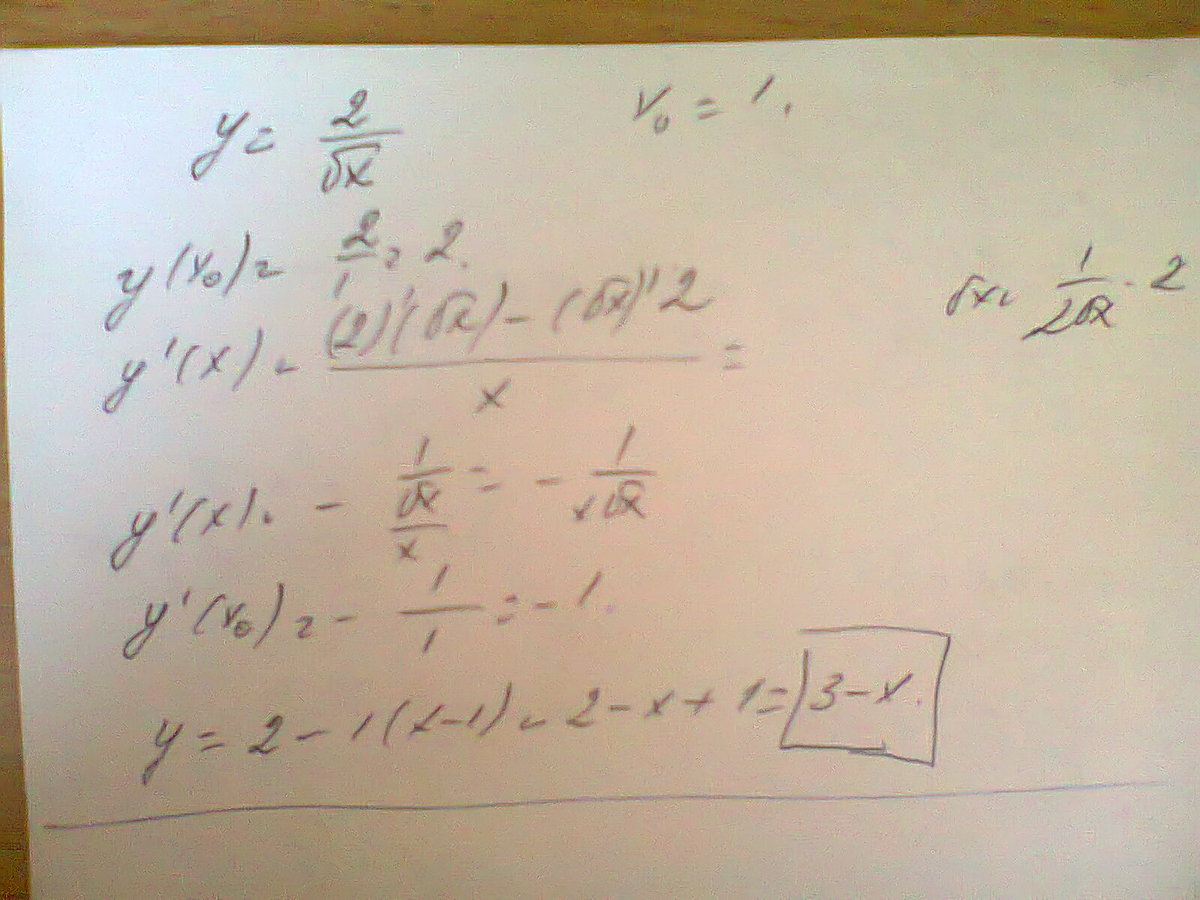 y = 2/√x    x₀ = 1.
y(x₀) = 2/1 = 2.
√x = 1/(2√x) · 2
y'(x) = ((2)'(√x) - (√x)'2)/x =
y'(x) = - (1/√x)/x = - 1/(x√x)
y'(x₀) = - 1/1 = - 1.
y = 2 - 1(x-1) = 2 - x + 1 = 3 - x.